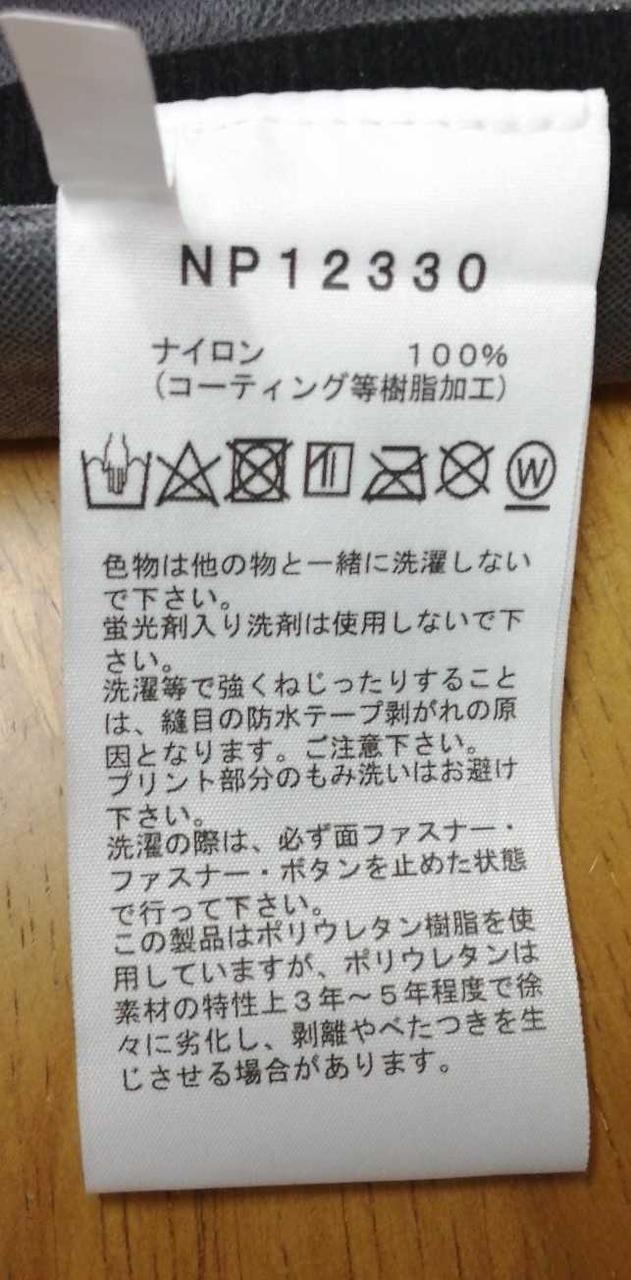 NP12330
ナイロン 100%
（コーティング等樹脂加工）
W
色物は他の物と一緒に洗濯しない
で下さい。
蛍光剤入り洗剤は使用しないで下
さい。
洗濯等で強くねじったりすること
は、縫目の防水テープ剥がれの原
因となります。ご注意下さい。
プリント部分のもみ洗いはお避け
下さい。
洗濯の際は、必ず面ファスナー・
ファスナー・ボタンを止めた状態
で行って下さい。
この製品はポリウレタン樹脂を使
用していますが、ポリウレタンは
素材の特性上３年～５年程度で徐
々に劣化し、剥離やべたつきを生
じさせる場合があります。